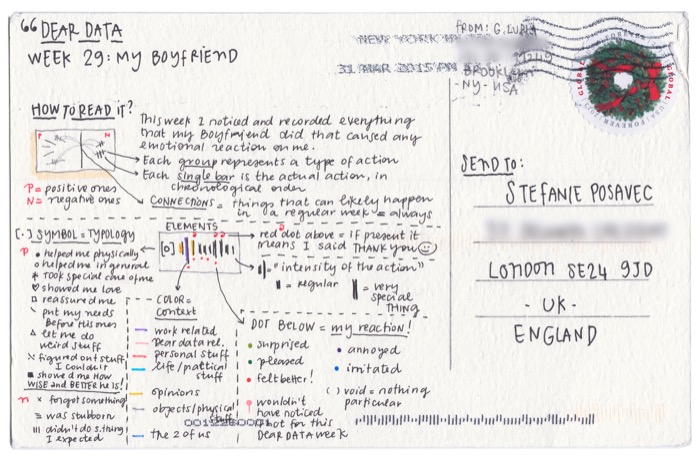 DEAR DATA
WEEK 29: MY BOYFRIEND
FROM: G. LUPI
NEW YORK
31 MAR 2015 PM
11249
BROOKLYN
- NY - USA
GLOBAL
FOREVER
HOW TO READ IT?
This week I noticed and recorded everything
that my Boyfriend did that caused any
emotional reaction on me.
P N
Each group represents a type of action
Each single bar is the actual action, in
chronological order
P = positive ones
N = negative ones
CONNECTIONS = things that can likely happen
in a regular week = always
SEND TO:
STEFANIE POSAVEC
LONDON SE24 9JD
- UK -
ENGLAND
[·] SYMBOL = TYPOLOGY
P
• helped me physically
o helped me in general
* TOOK special care of me
♡ showed me love
□ reassured me
\ put my needs
Before his ones
△ let me do
weird stuff
figured out stuff
I couldn't
■ showed me HOW
WISE and BETTER he is!
n
× forgot something
= was stubborn
III didn't do s.thing
I expected
ELEMENTS
[o]
red dot above = if present it
means I said THANK YOU ☺
= "intensity of the action"
= regular
= very
special
THING
COLOR =
context
work related
Dear data rel.
personal stuff
life/practical
stuff
opinions
objects/physical
stuff
the 2 of us
DOT BELOW = my reaction!
• surprised
• pleased
• felt better!
wouldn't
have noticed
if not for this
DEAR DATA week
• annoyed
• irritated
( ) void = nothing
particular